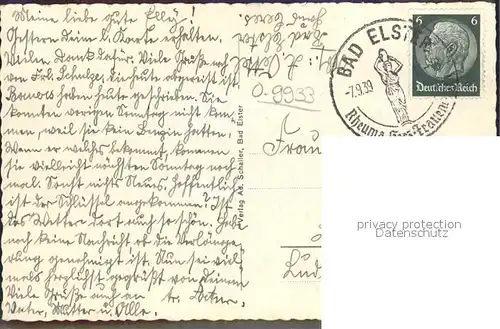 Meine liebe gute Elly!
Gestern deine l. Karte erhalten.
Vielen Dank dafür. Viele Grüße noch
von Frl. Schulze, die heute abgereist ist.
haben heute geschrieben. Sie
konnten vorigen Sonntag nicht kom-
men, weil sie kein Benzin hatten.
Wenn er welches bekommt, kommen
sie vielleicht nächsten Sonntag noch
mal. Sonst nichts Neues. Hoffentlich
ist der Schlüssel angekommen? Ist
das Wetter dort auch so schön. Habe
noch keine Nachricht ob die Verlänge-
rung genehmigt ist. Nun sei viel-
mals herzlichst gegrüßt von Deinem
Viele Grüße auch an
Vater, Mutter u. Alle.
Bad Elster
O-9933
Verlag Ad. Schaller, Bad Elster
Frau
BAD ELSTER
-7.9.39
Rheuma Frauen
6 6
Deutsches Reich
privacy protection
Datenschutz